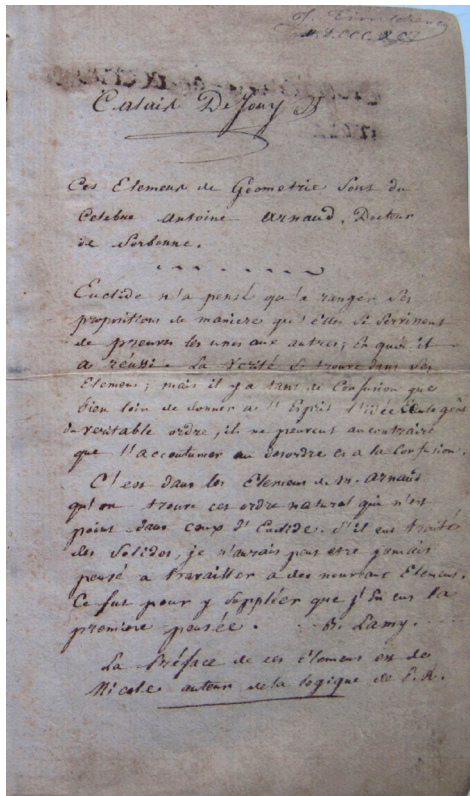 Calais De Jouy
Ces Elemens de Géometrie sont du
Celebre Antoine Arnaud, Docteur
de Sorbonne.
Euclide n'a pensé qu'a ranger ses
propositions de maniere qu'elles se servissent
de preuves les unes aux autres; en quoi il
a réussi. La verité se trouve dans ses
Elemens; mais il y a tant de confusion que
bien loin de donner a l'Esprit l'idée et le goût
du veritable ordre, ils ne peuvent au contraire
que l'accoutumer au desordre et a la Confusion.
C'est dans les Elemens de Mr. Arnaud
qu'on trouve cet ordre naturel qui n'est
point dans ceux d'Euclide. S'il eut traités
des Solides, je n'aurais peut etre jamais
pensé a travailler a des nouveaux Elemens.
Ce fut pour y suppléer que j'en eus la
premiere pensée. B. Lamy.
La Préface de ces élemens est de
Nicole auteur de la logique de P. R.